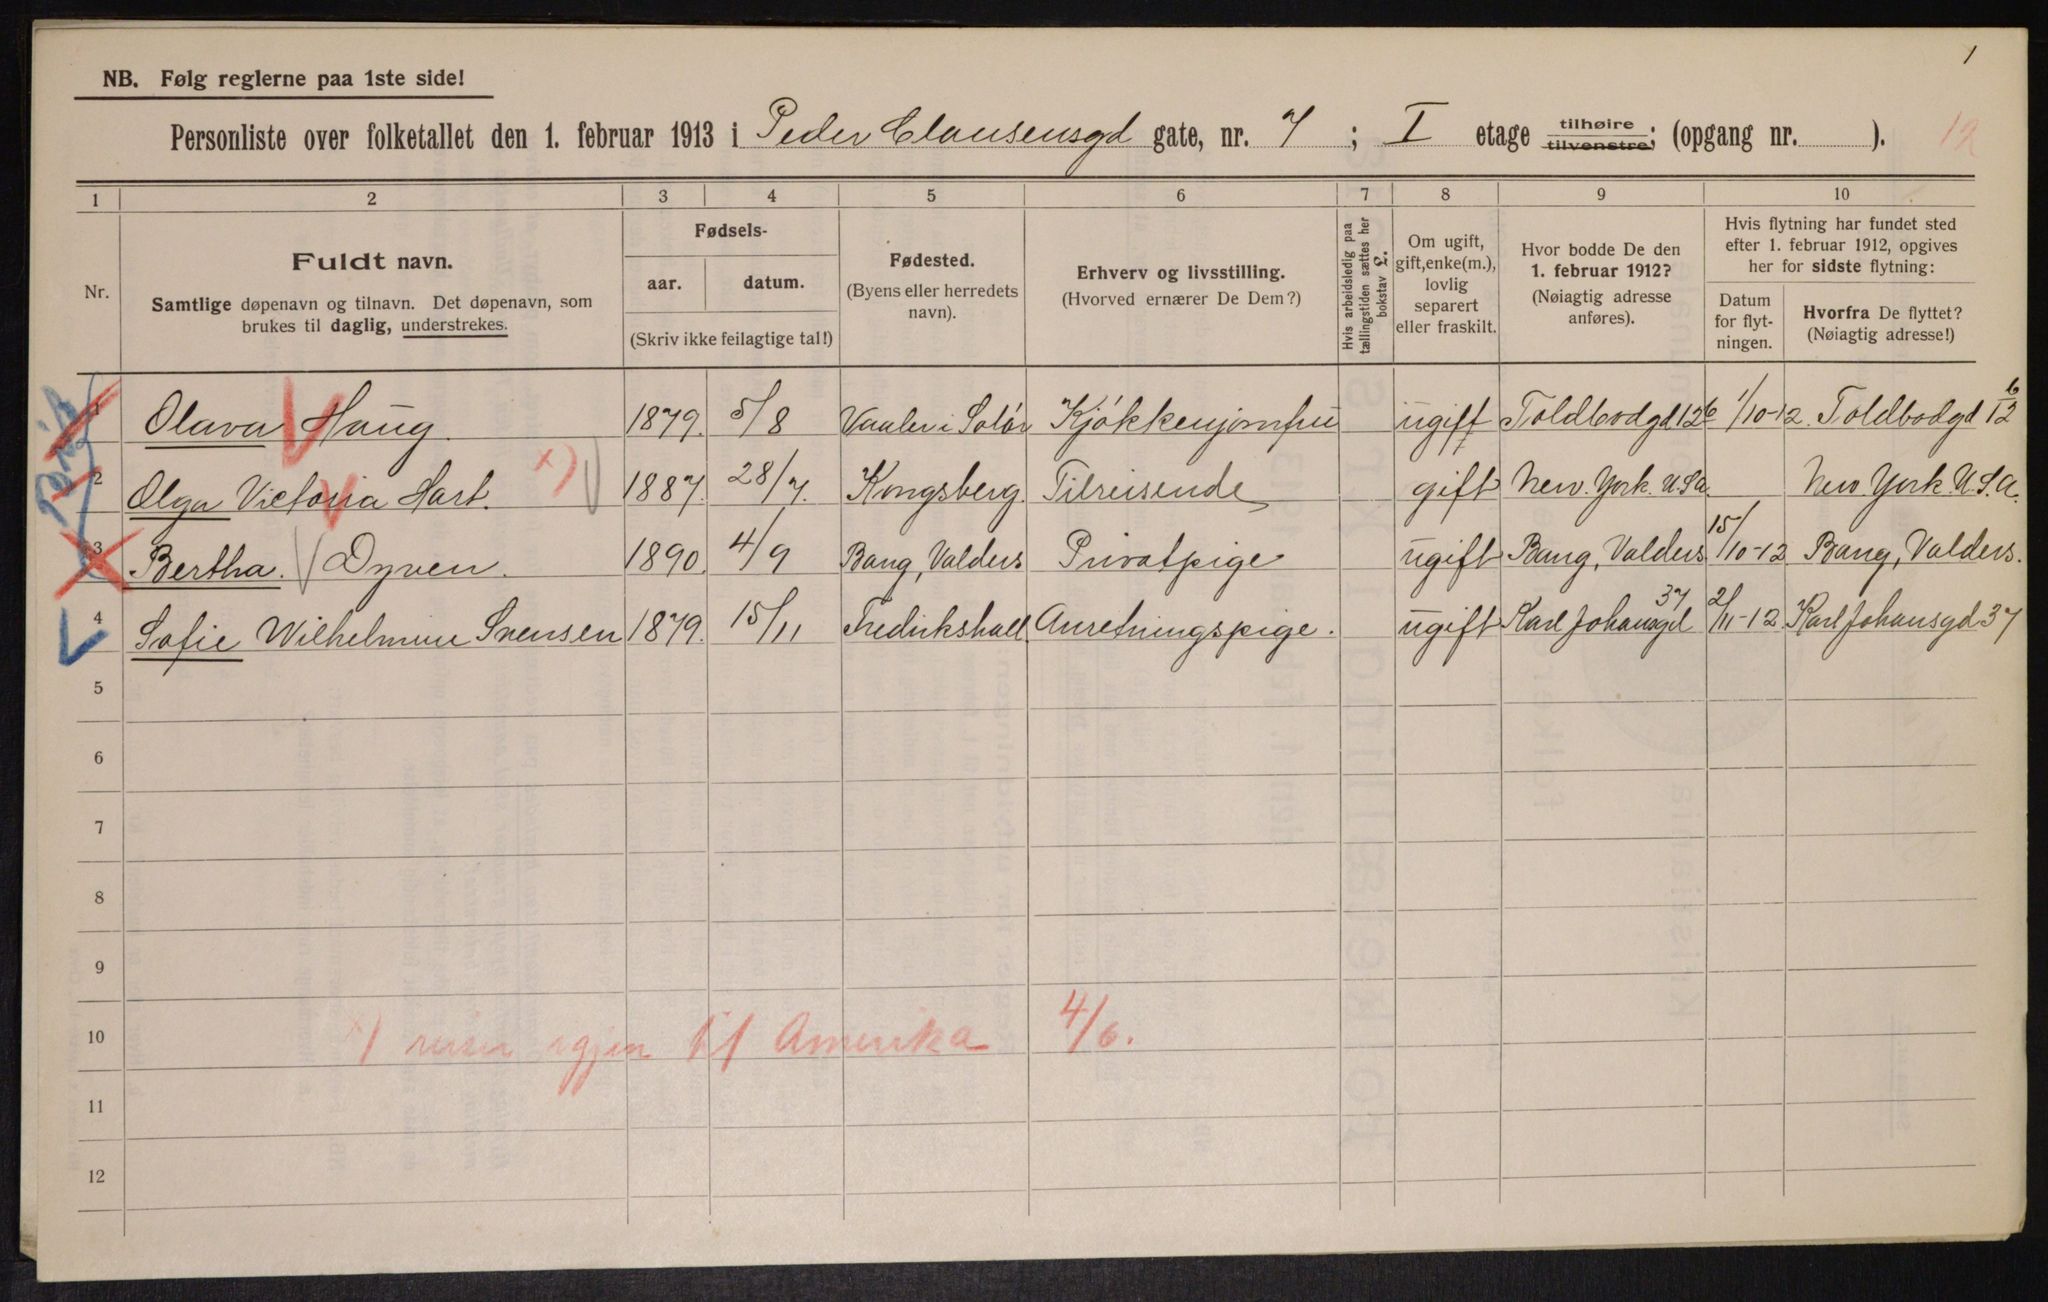 1
NB. Følg reglerne paa 1ste side!
Personliste over folketallet den 1. februar 1913 i Peder Clausensgd gate, nr. 7; I etage tilhøire tilvenstre; (opgang nr. ). 12
1 2 3 4 5 6 7 8 9 10
Nr.
Fuldt navn.
Samtlige døpenavn og tilnavn. Det døpenavn, som
brukes til daglig, understrekes.
Fødsels-
aar. datum.
(Skriv ikke feilagtige tal!)
Fødested.
(Byens eller herredets
navn).
Erhverv og livsstilling.
(Hvorved ernærer De Dem?)
Hvis arbeidsledig paa
tællingstiden sættes her
bokstav L.
Om ugift,
gift, enke(m.),
lovlig
separert
eller fraskilt.
Hvor bodde De den
1. februar 1912?
(Nøiagtig adresse
anføres).
Hvis flytning har fundet sted
efter 1. februar 1912, opgives
her for sidste flytning:
Datum
for flyt-
ningen.
Hvorfra De flyttet?
(Nøiagtig adresse!)
1 Olava Haug. 1879. 5/8 Vaaler i Solør Kjøkkenjomfru ugift Toldbodgd 12b 1/10-12. Toldbodgd 12b
2 Olga Victoria Hart. x) 1887. 28/7. Kongsberg. Tilreisende gift New. York. U.S.a. New York. U.S.A.
3 Bertha. Dyven. 1890. 4/9 Bang, Valders Privatpige ugift Bang, Valders 15/10-12 Bang, Valders.
4 Sofie Wilhelmine Svensen 1879. 15/11 Fredrikshall Anretningspige. ugift Karl Johansgd 37 2/11-12. Karl Johansgd 37
5
6
7
8
9
10 x) reiser igjen til Amerika 4/6.
11
12